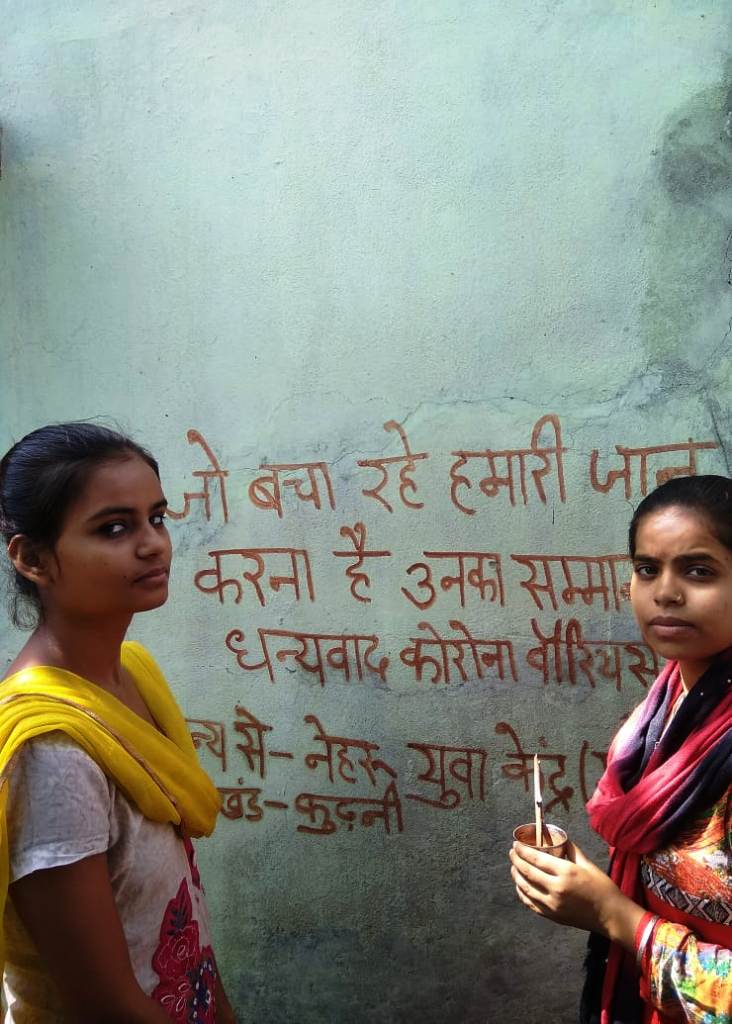 जो बचा रहे हमारी जान
करना है उनका सम्मान
धन्यवाद कोरोना वॉरियर्स
से - नेहरू युवा केंद्र (
खंड - कुढ़नी